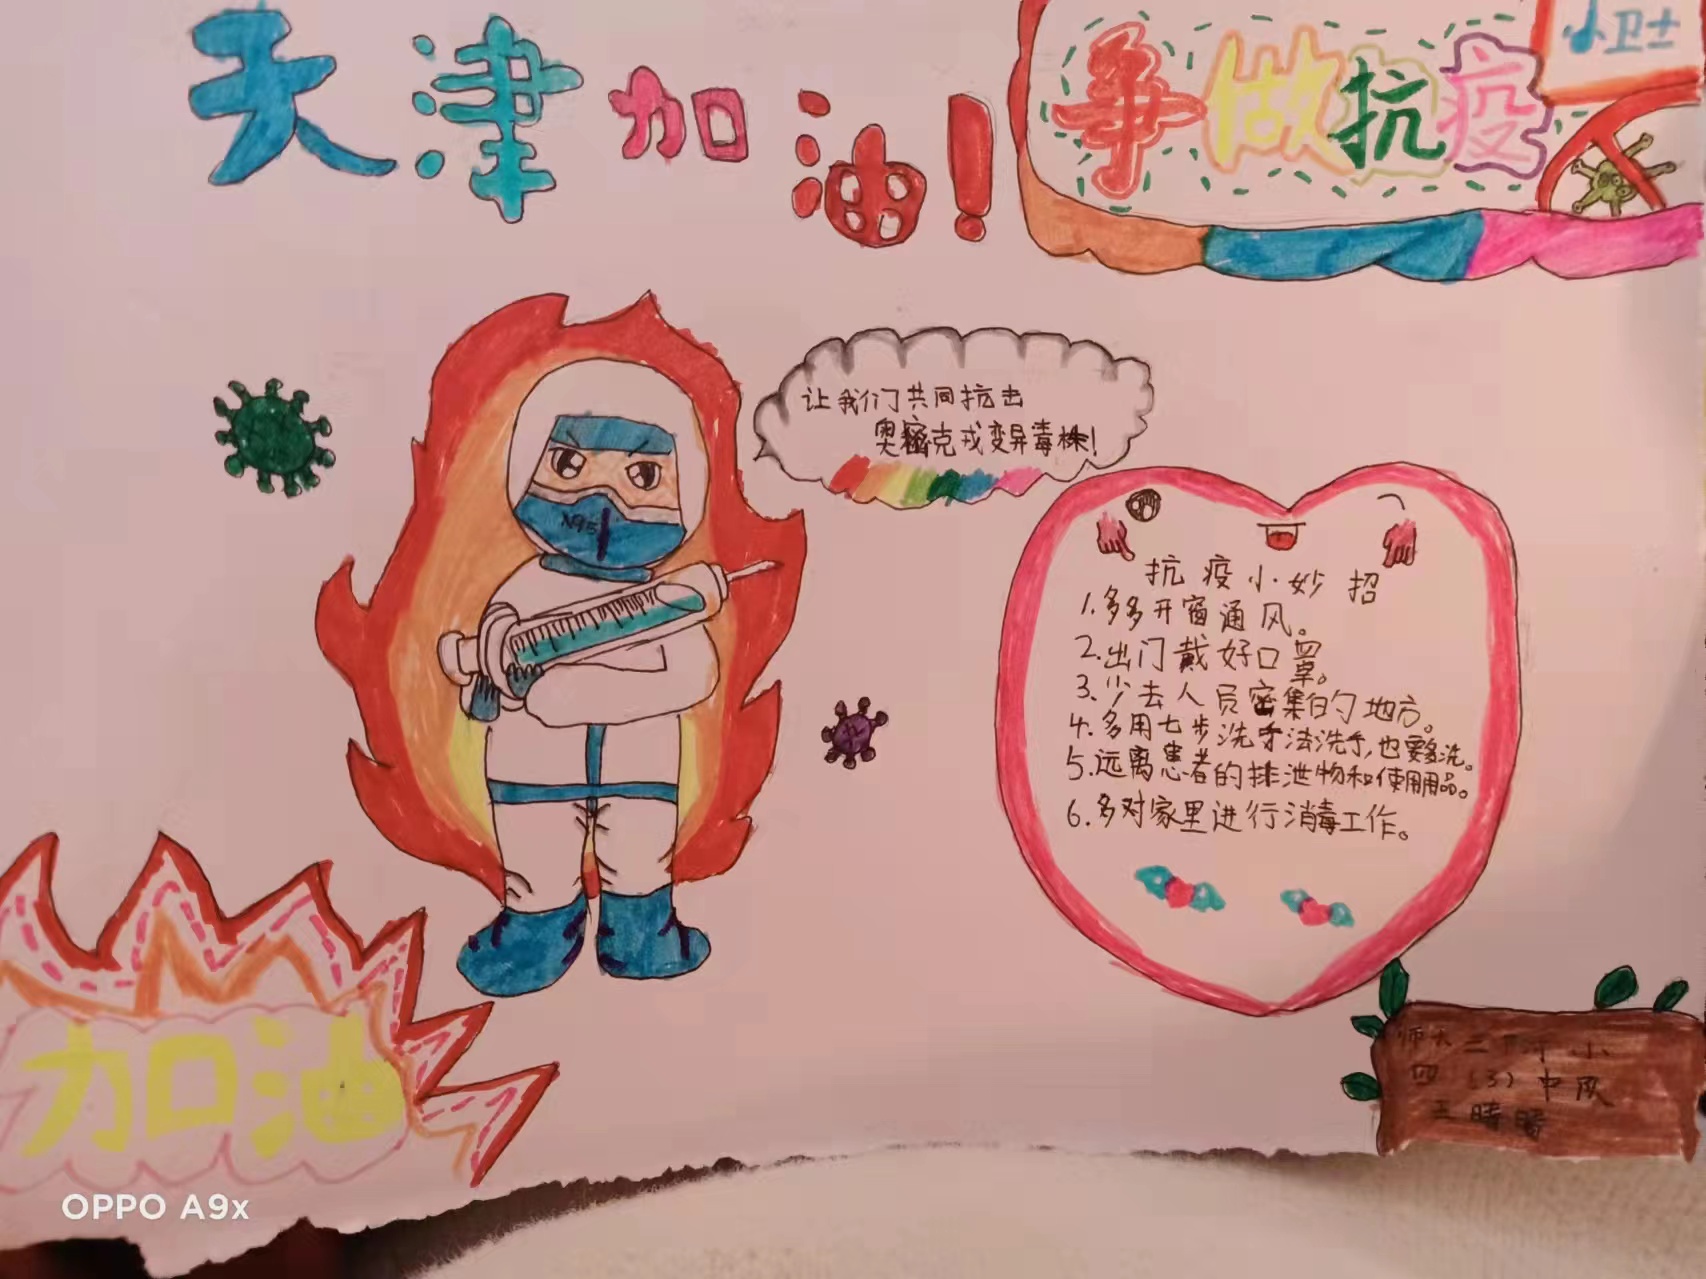 天津加油！
争做抗疫
小卫士
让我们共同抗击
奥密克戎变异毒株！
N95
抗疫小妙招
1.多多开窗通风。
2.出门戴好口罩。
3.少去人员密集的地方。
4.多用七步洗手法洗手,也要多洗。
5.远离患者的排泄物和使用用品。
6.多对家里进行消毒工作。
加油
师大三附小
四（3）中队
OPPO A9x